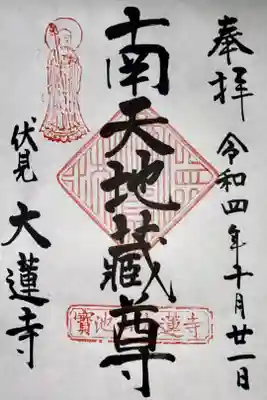 奉拝
令和四年十月廿一日
南天地蔵尊
伏見
大蓮寺
寶池
蓮寺